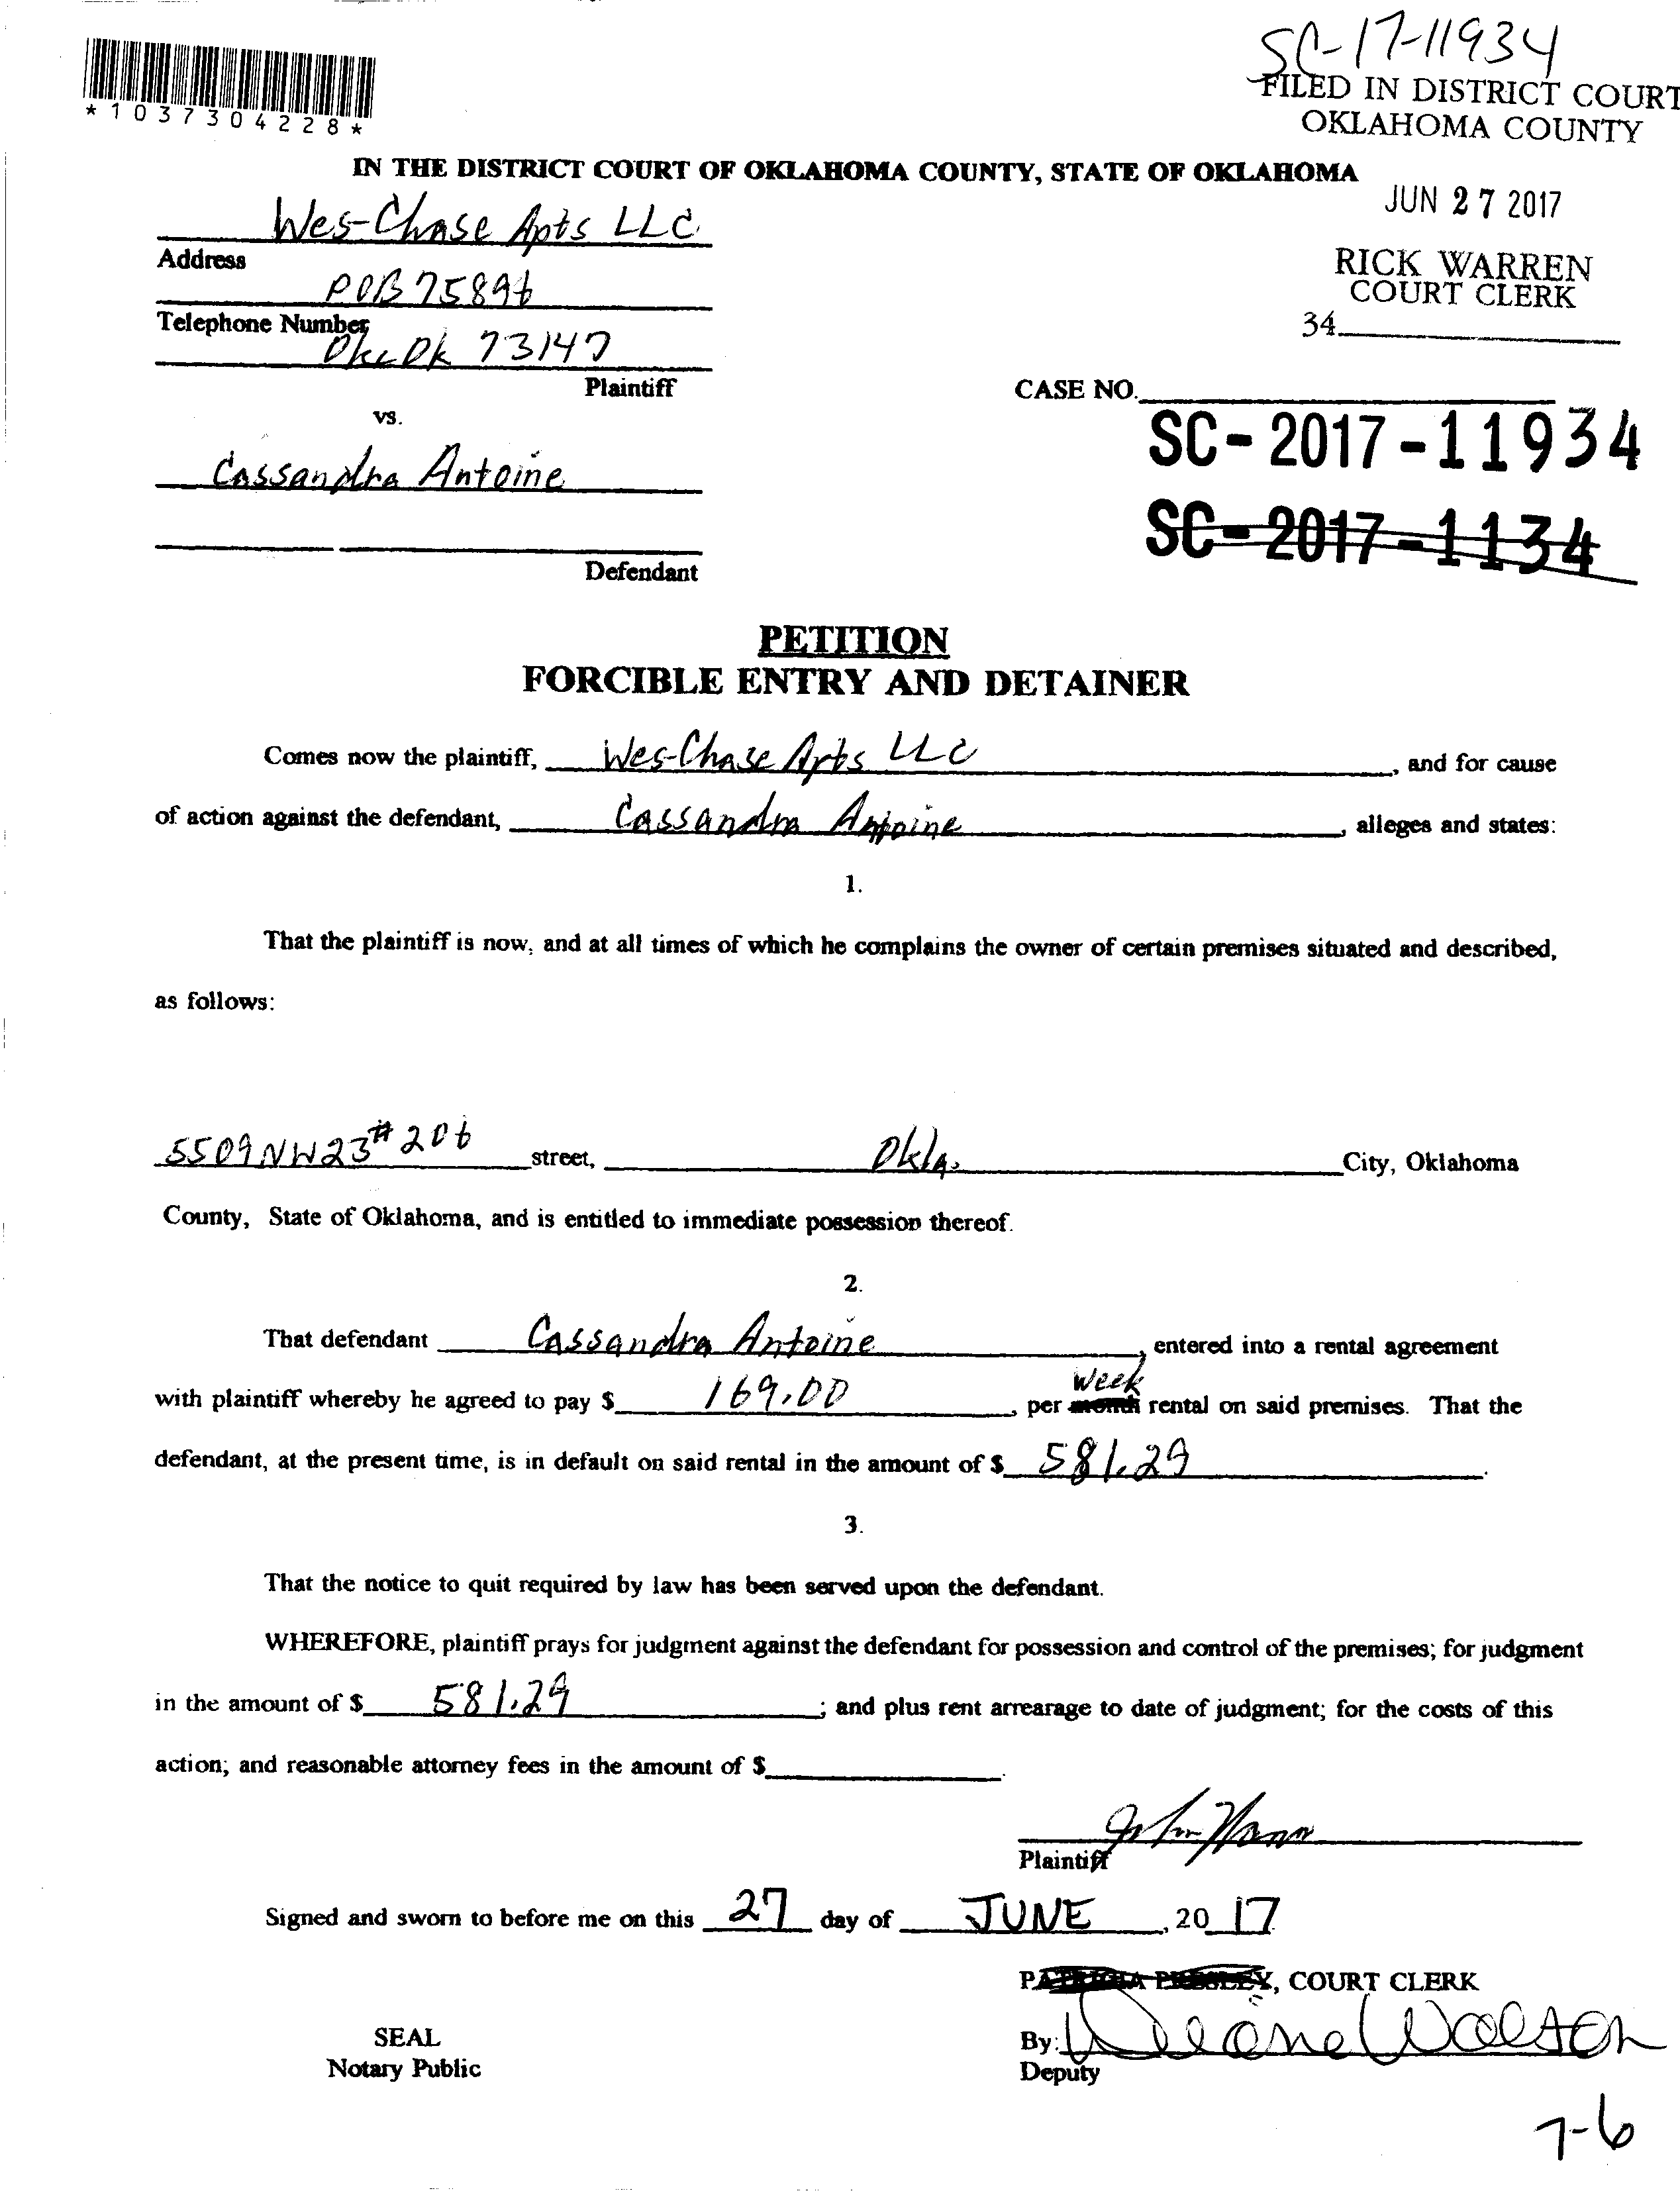 SC-17-11934
FILED IN DISTRICT COURT
OKLAHOMA COUNTY
*1037304228*
IN THE DISTRICT COURT OF OKLAHOMA COUNTY, STATE OF OKLAHOMA
JUN 27 2017
Wes-Chase Apts LLC
Address
RICK WARREN
COURT CLERK
POB 75896
Telephone Number
34
Okc Ok 73147
Plaintiff
CASE NO.
vs.
SC-2017-11934
Cassandra Antoine
SC-2017-1134
Defendant
PETITION
FORCIBLE ENTRY AND DETAINER
Comes now the plaintiff, Wes-Chase Apts LLC, and for cause
of action against the defendant, Cassandra Antoine, alleges and states:
1.
That the plaintiff is now, and at all times of which he complains the owner of certain premises situated and described,
as follows:
5509 NW 23 #206 street, Okla. City, Oklahoma
County, State of Oklahoma, and is entitled to immediate possession thereof.
2.
That defendant Cassandra Antoine, entered into a rental agreement
week
with plaintiff whereby he agreed to pay $ 169.00, per month rental on said premises. That the
defendant, at the present time, is in default on said rental in the amount of $ 581.29.
3.
That the notice to quit required by law has been served upon the defendant.
WHEREFORE, plaintiff prays for judgment against the defendant for possession and control of the premises; for judgment
in the amount of $ 581.29; and plus rent arrearage to date of judgment; for the costs of this
action; and reasonable attorney fees in the amount of $ .
Plaintiff
Signed and sworn to before me on this 27 day of JUNE, 20 17
PATRICIA PRESLEY, COURT CLERK
SEAL
By:
Notary Public
Deputy
7-6